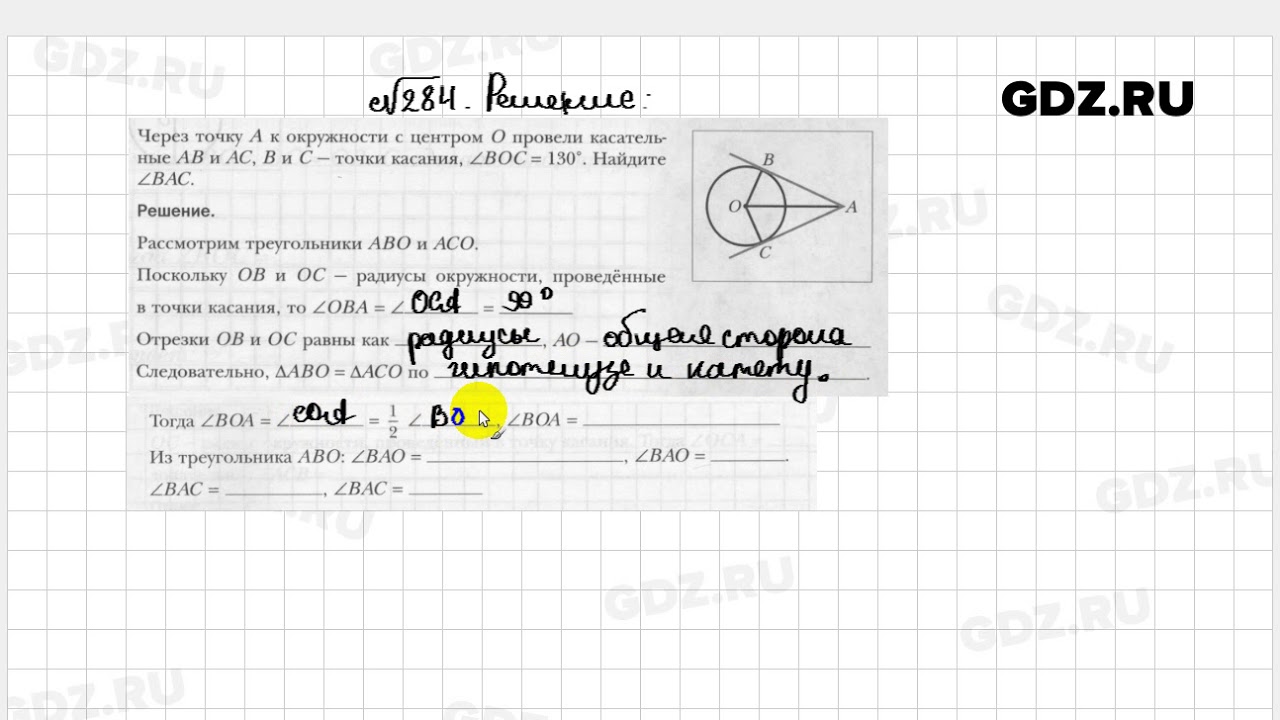 GDZ.RU
GDZ.RU
№284. Решение:
GDZ.RU
Через точку A к окружности с центром O провели касатель-
ные AB и AC, B и C — точки касания, ∠BOC = 130°. Найдите
∠BAC.
B
O
A
C
Решение.
GDZ.RU
Рассмотрим треугольники ABO и ACO.
Поскольку OB и OC — радиусы окружности, проведённые
в точки касания, то ∠OBA = ∠ OCA = 90°
GDZ.RU
GDZ.RU
Отрезки OB и OC равны как радиусы, AO — общая сторона
Следовательно, ΔABO = ΔACO по гипотенузе и катету.
Тогда ∠BOA = ∠ COA = 1/2 ∠ BO, ∠BOA =
Из треугольника ABO: ∠BAO = , ∠BAO = .
∠BAC = , ∠BAC =
GDZ.RU
GDZ.RU
GDZ.RU
GDZ.RU
GDZ.RU
GDZ.RU